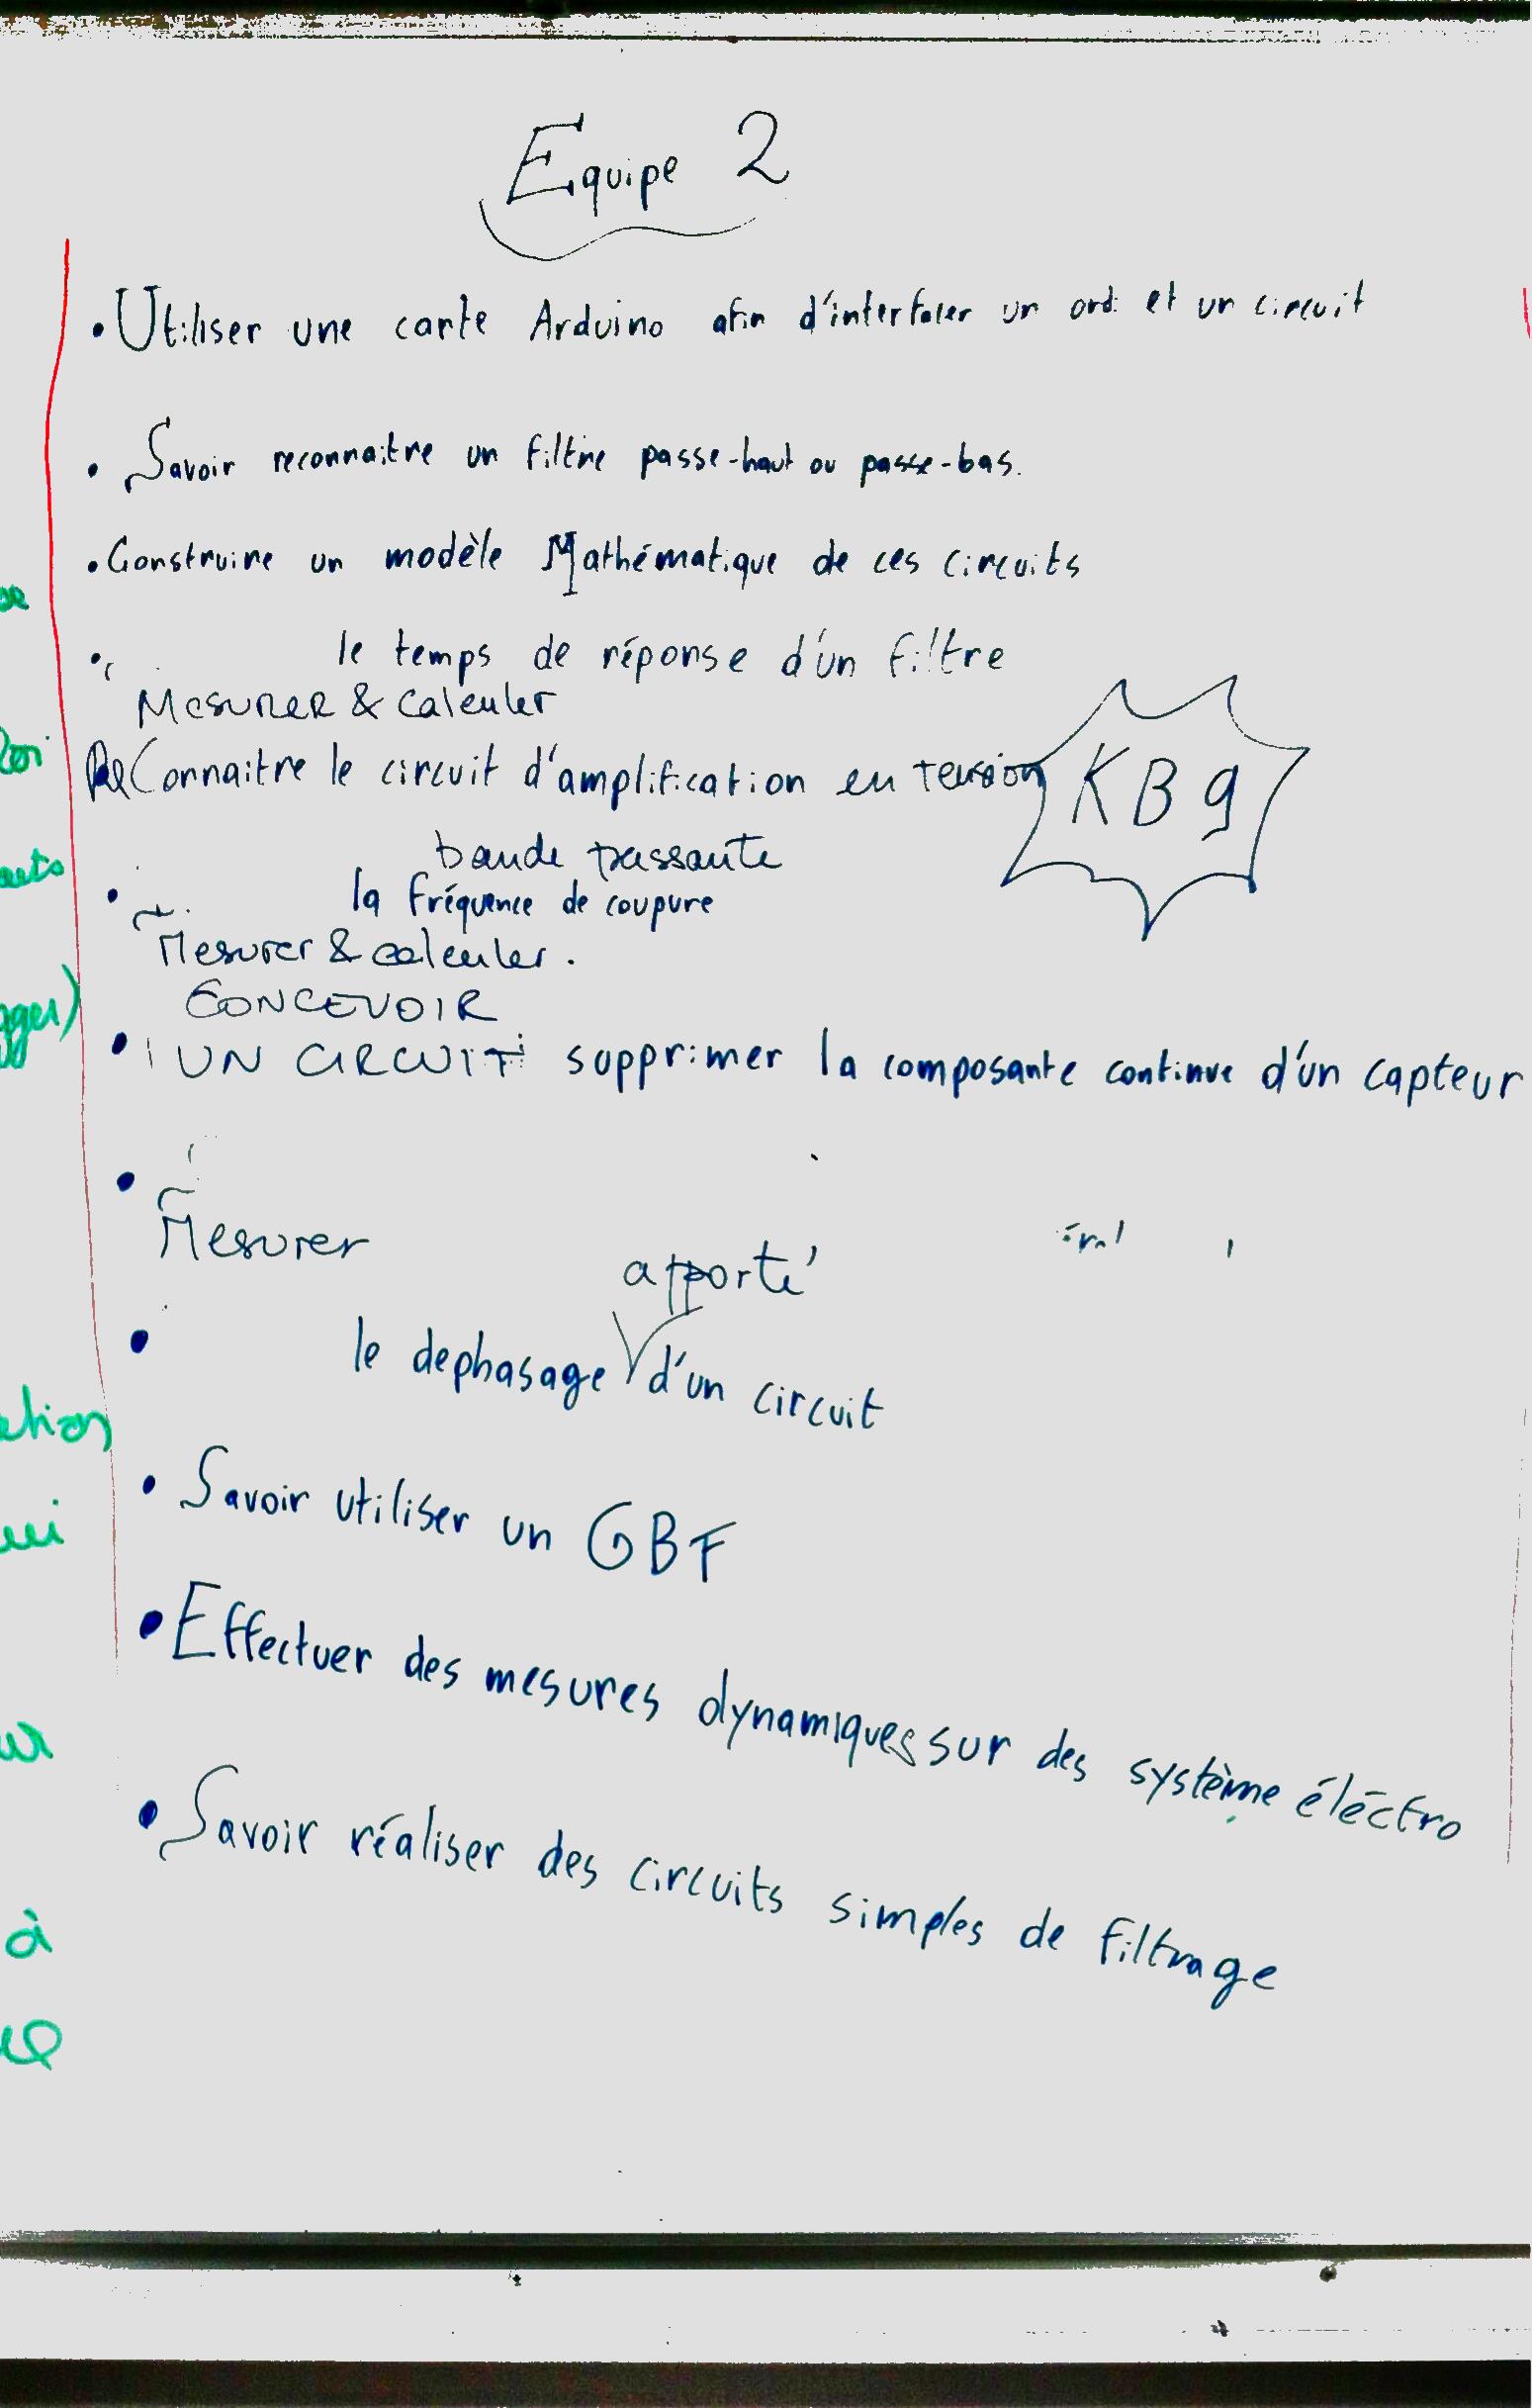 Equipe 2
• Utiliser une carte Arduino afin d'interfacer un ord. et un circuit
• Savoir reconnaitre un filtre passe-haut ou passe-bas.
• Construire un modèle Mathématique de ces circuits
• le temps de réponse d'un filtre
Mesurer & calculer
ReConnaitre le circuit d'amplification en tension
KB9
bande passante
• la fréquence de coupure
Mesurer & calculer.
CONCEVOIR
• UN CIRCUIT supprimer la composante continue d'un capteur
•
Mesurer
apporté
• le dephasage d'un circuit
• Savoir utiliser un GBF
• Effectuer des mesures dynamiques sur des système éléctro
• Savoir réaliser des circuits simples de filtrage
ation
à